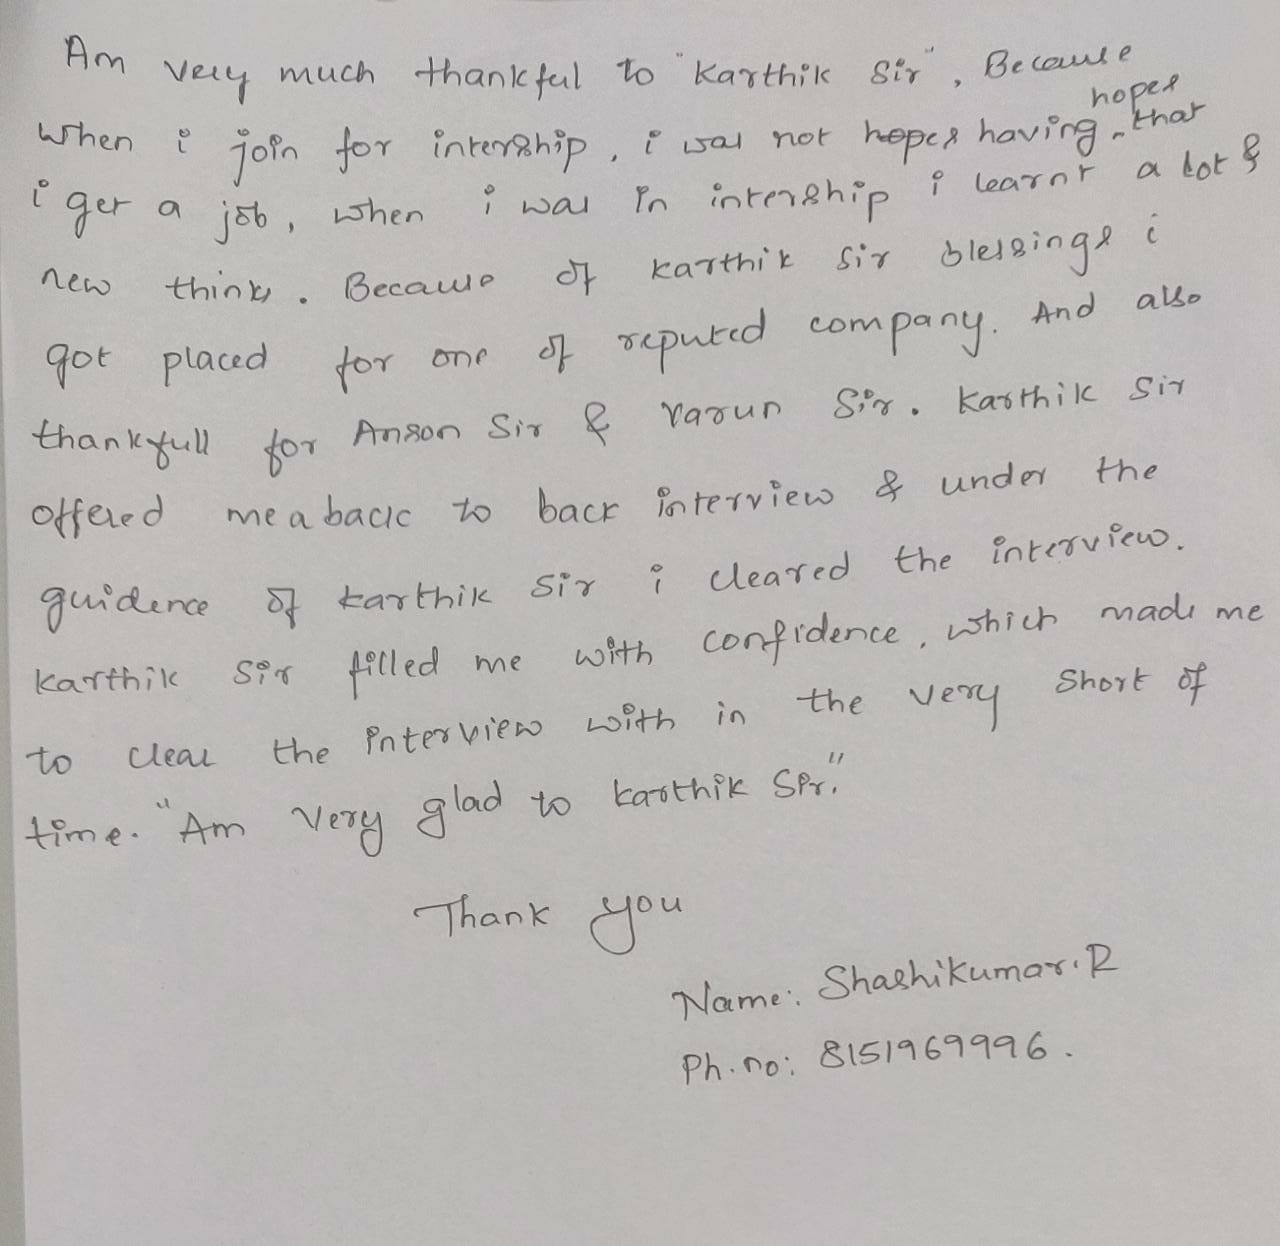 Am very much thankful to "Karthik Sir", Because
when i join for intership, i was not hopes having hopes that
i get a job, when i was in intership i learnt a lot &
new thinks. Because of Karthik Sir blessings i
got placed for one of reputed company. And also
thankfull for Anson Sir & Varun Sir. Karthik Sir
offered me a back to back interview & under the
guidence of Karthik Sir i cleared the interview.
Karthik Sir filled me with confidence, which made me
to clear the interview with in the very short of
time. "Am very glad to Karthik Sir."
Thank you
Name: Shashikumar.R
Ph.no: 8151969996.